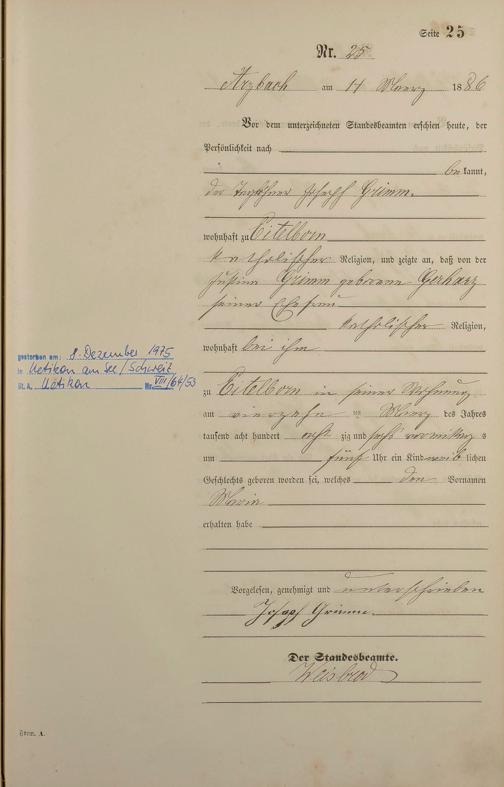 Seite 25
Nr. 25
Arzbach am 14 Maerz 1886
Vor dem unterzeichneten Standesbeamten erschien heute, der
Persönlichkeit nach
bekannt,
der Tagelöhner Joseph Grimm
wohnhaft zu Eitelborn
katholischer Religion, und zeigte an, daß von der
Justina Grimm geborene Gerharz
seiner Ehefrau
katholischer Religion,
wohnhaft bei ihm
gestorben am: 8. Dezember 1975
in Uetikon am See/Schweiz
St. A. Uetikon Nr. VIII/64/53
zu Eitelborn in seiner Wohnung
am vierzehn ten Maerz des Jahres
tausend acht hundert acht zig und sechs vormittags
um fünf Uhr ein Kind weiblichen
Geschlechts geboren worden sei, welches den Vornamen
Maria
erhalten habe
Vorgelesen, genehmigt und unterschrieben
Joseph Grimm.
Der Standesbeamte.
Weisbrod
Form. A.